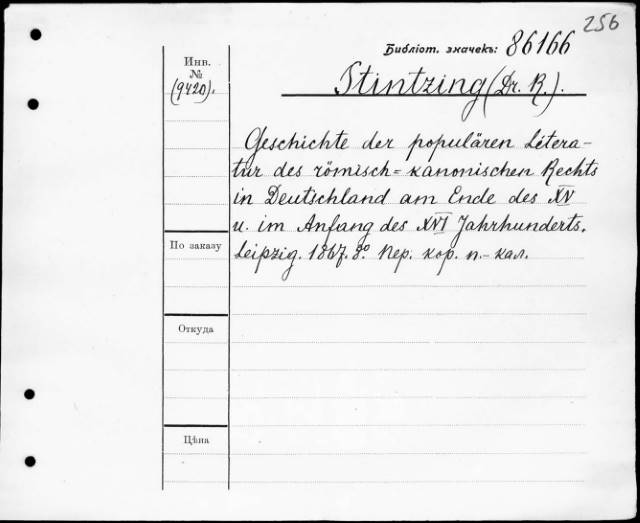 256
Библіот. значекъ: 86166
Инв.
№
(9420).
Stintzing (Dr. R.).
Geschichte der populären Litera-
tur des römisch=kanonischen Rechts
in Deutschland am Ende des XV
u. im Anfang des XVI Jahrhunderts.
Leipzig. 1867. 8º. Пер. кор. п.-кал.
По заказу
Откуда
Цѣна